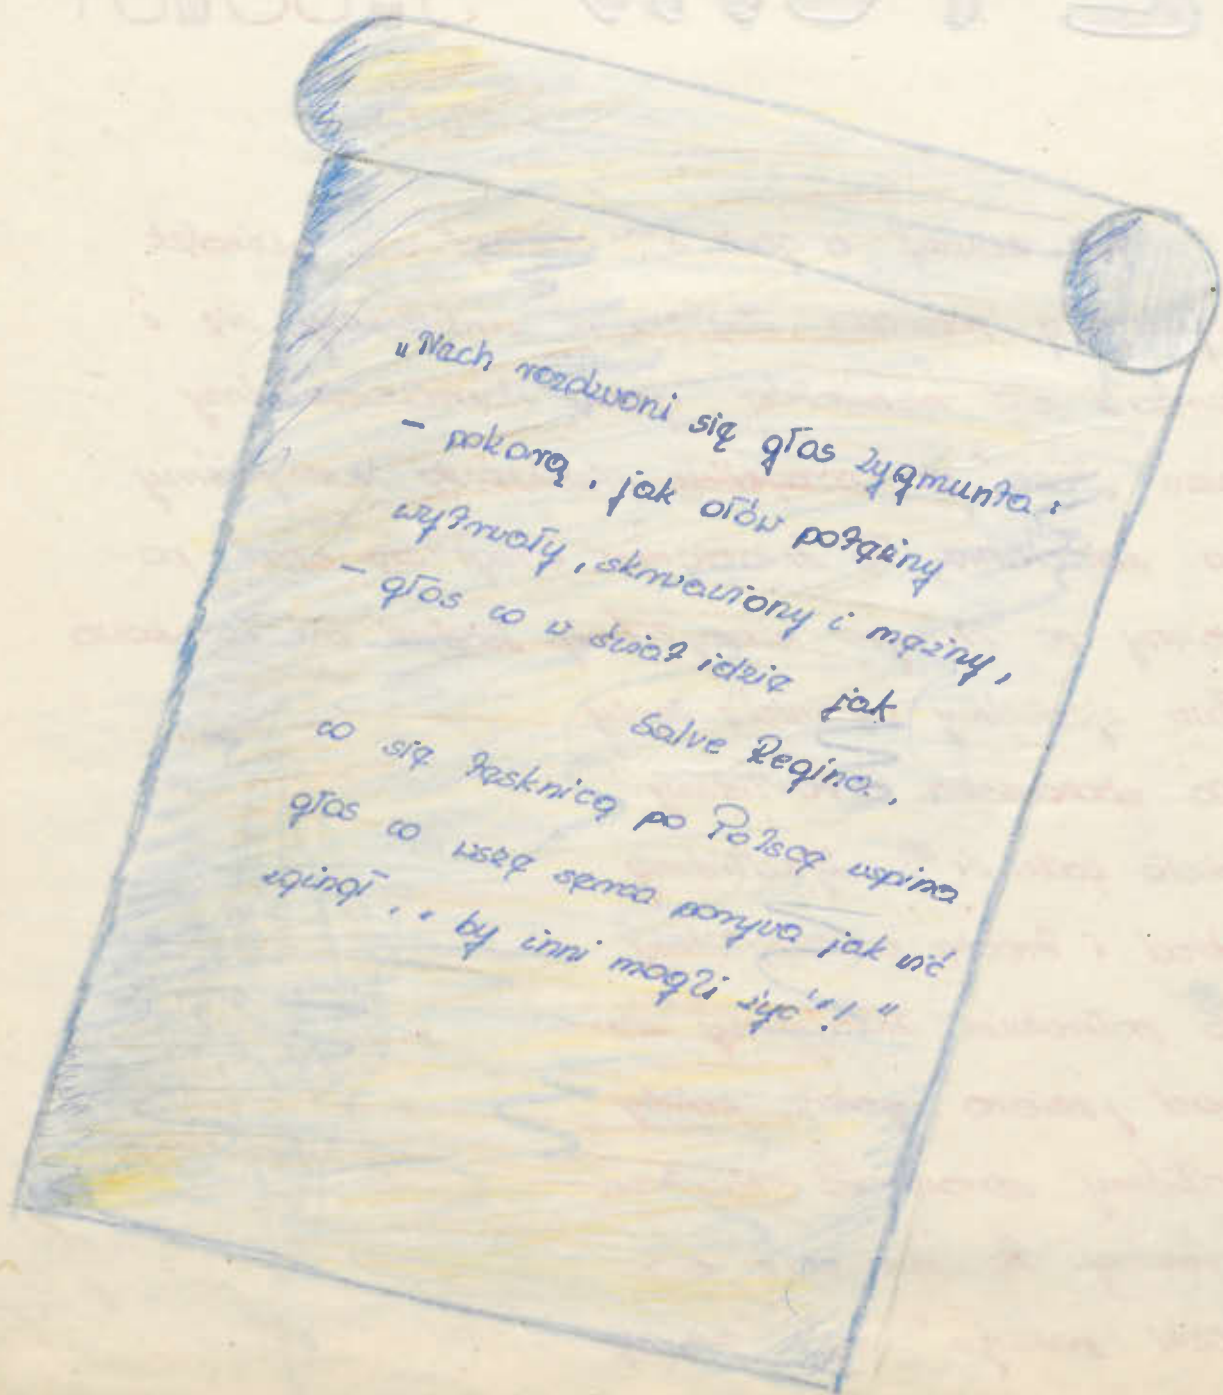 „Niech rozdzwoni się głos Zygmunta:
– pokorą, jak ołów potężny
wytrwały, skrwawiony i mężny,
– głos co w świat idzie jak
Salve Regina,
co się tęsknicą po Polsce wspina
głos co wsze serca porywa jak wić
zginął „by inni mogli żyć"!"